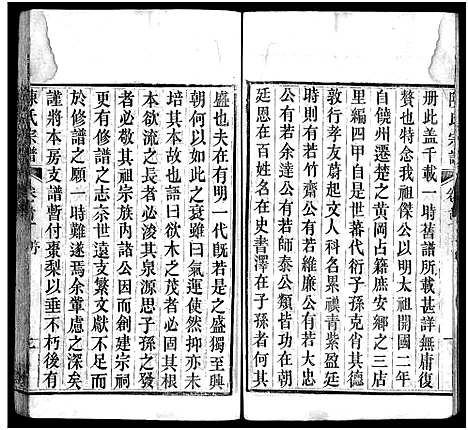 陳氏宗譜
冊此盖千載一時舊譜所載甚詳無庸復
贅也特念我祖傑公以明太祖開國二年
自饒州遷楚之黄岡占籍庶安鄉之三店
里編四甲自是世蕃代衍子孫克肖其士
敦行孝友蔚起文人科名累禩青紫盈廷
時則有若竹齋公有若維廉公有若大忠
公有若余達公有若師泰公類皆功在朝
廷恩在姓名在史書澤在子孫者何其
盛也夫在有明一代旣若是之盛獨至興
朝何以之衰雖曰氣運使然抑亦未
培其本故也語曰欲木之茂者必固其根
本欲流之長者必浚其泉源思子孫之發
者必敬其祖宗族內諸公因而創建宗祠
更有志於修譜之志奈世遠支繁文獻不足
於修譜之願一時難遂焉余輩慮之深矣
謹將本房支譜暫付棗梨以垂不朽後有
陳氏宗譜
卷首
序